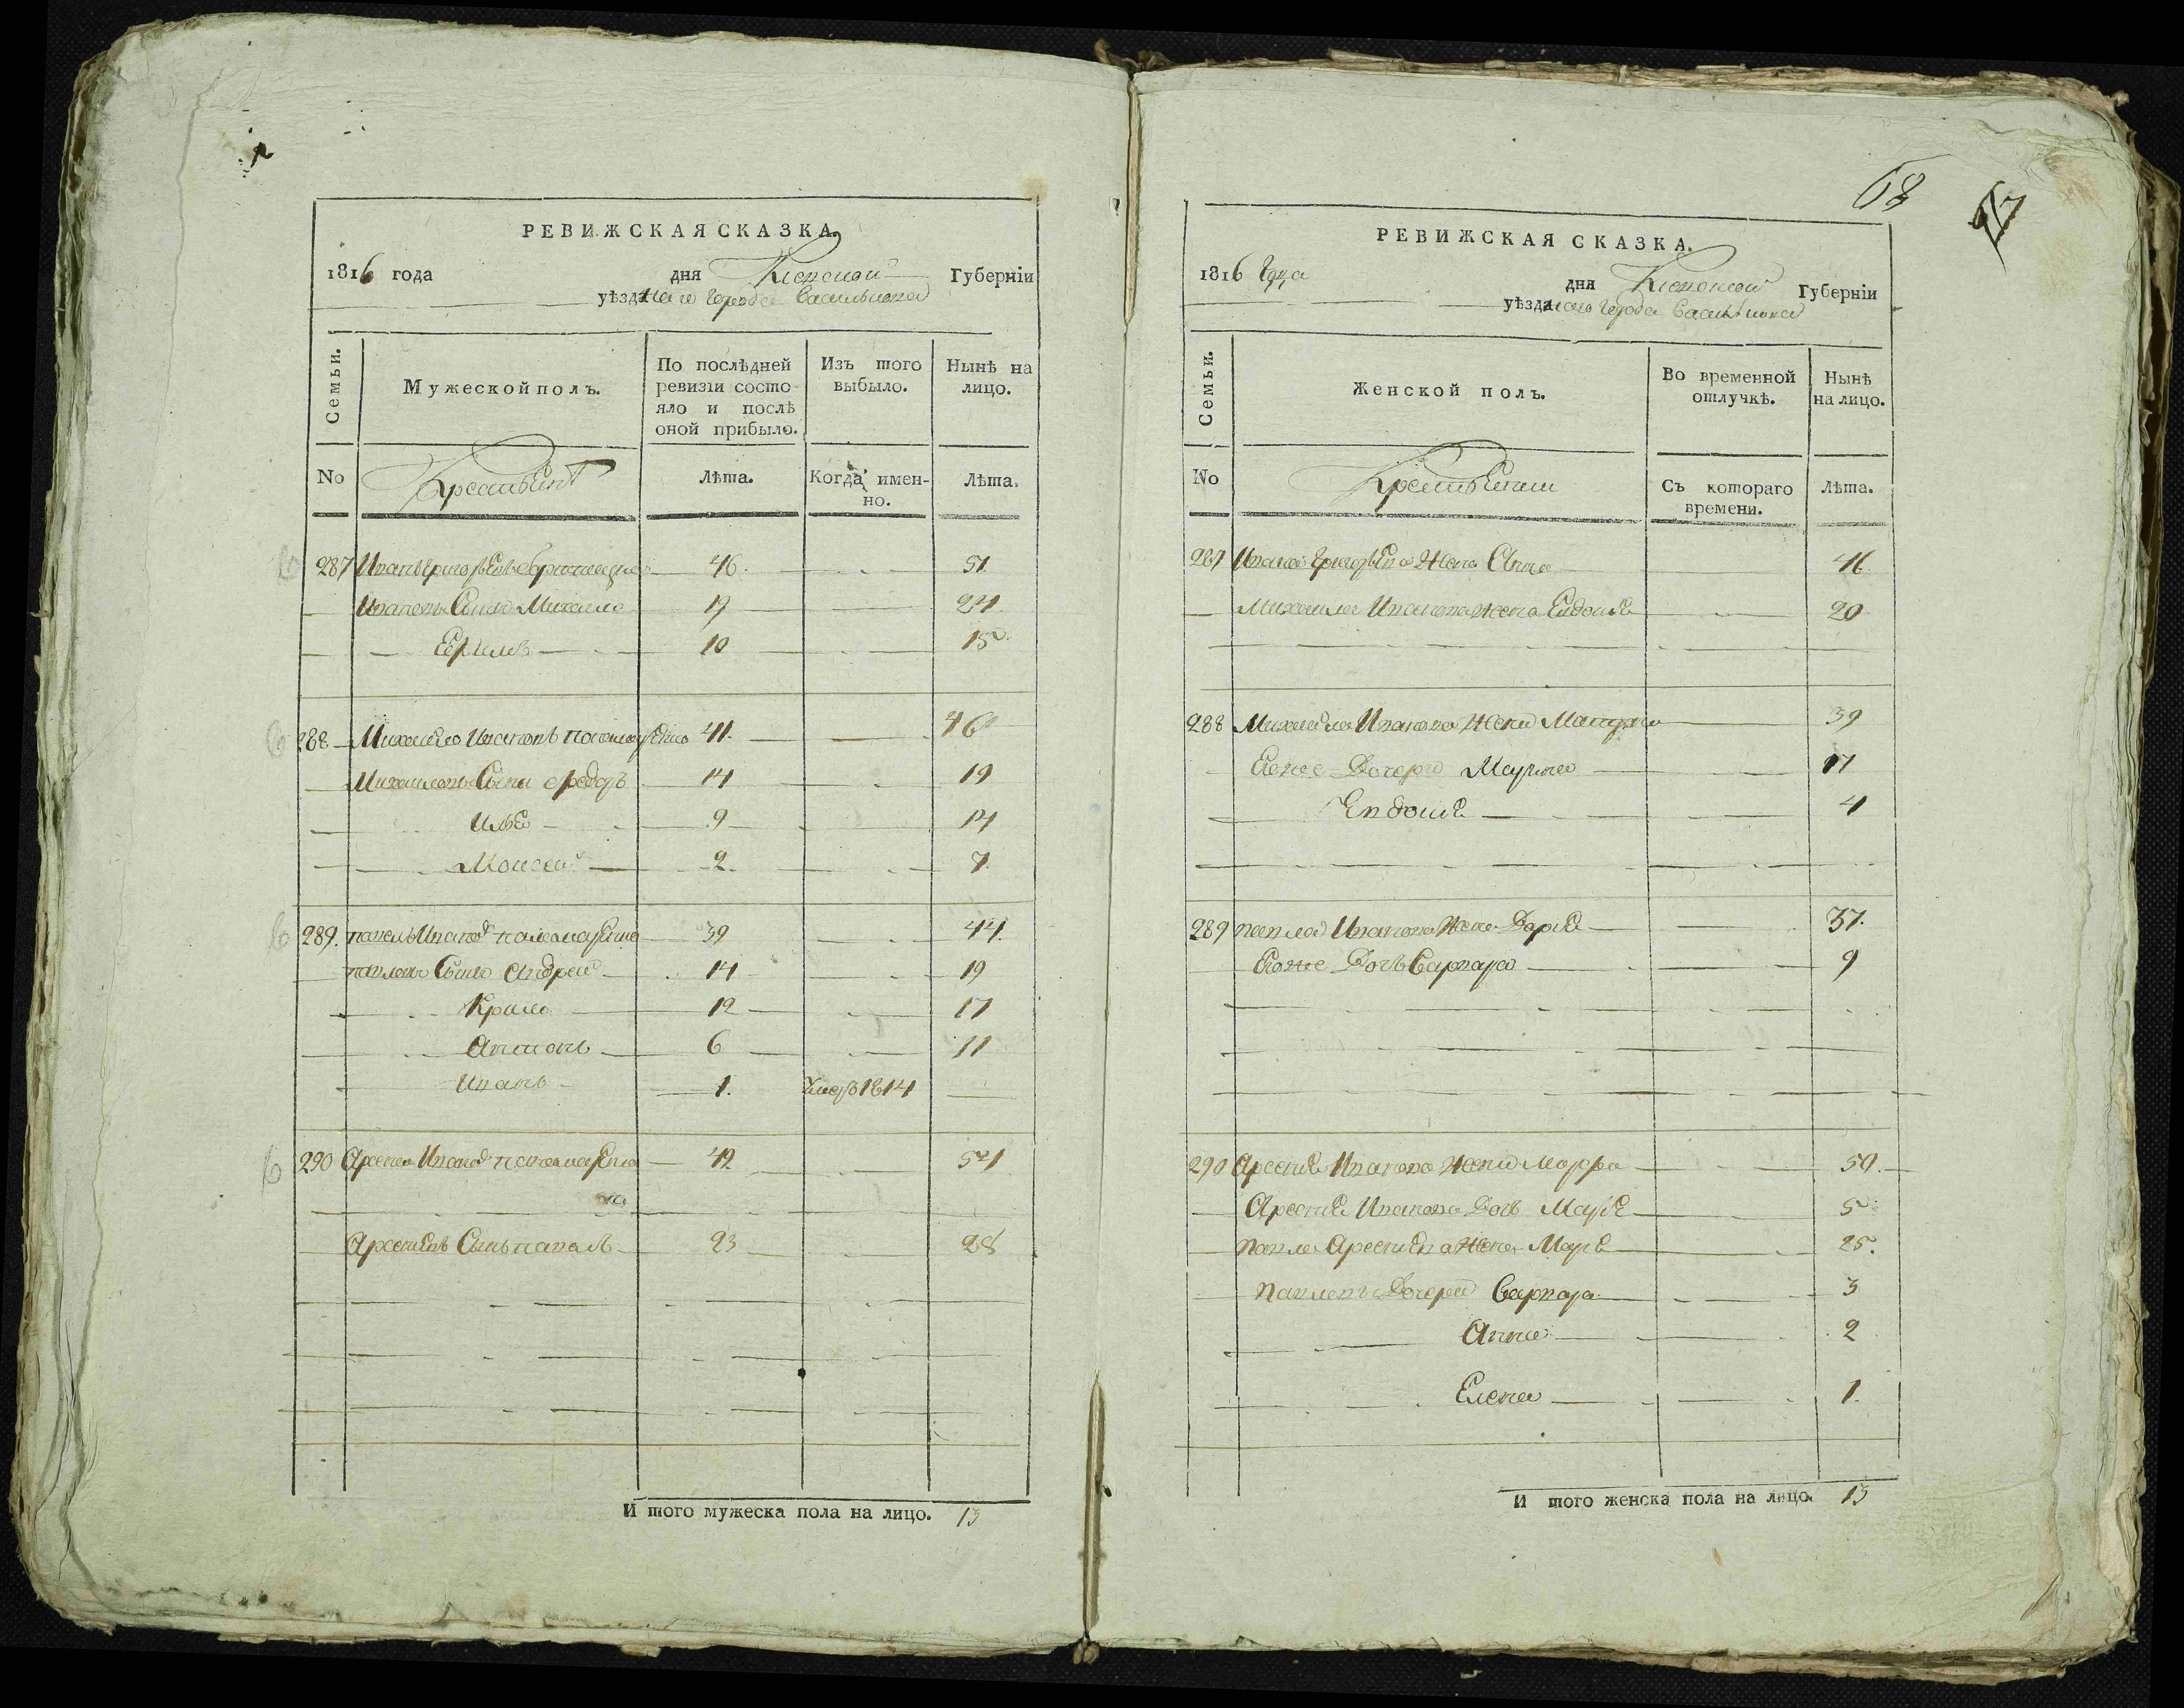 РЕВИЖСКАЯ СКАЗКА.
1816 года дня Киевской Губерніи
уѣзднаго города Василькова
Семьи.
Мужеской полъ.
По послѣдней ревизіи состояло и послѣ оной прибыло.
Изъ того выбыло.
Нынѣ на лицо.
No
Лѣта.
Когда имен-но.
Лѣта.
287 Иванъ 46. 51
Ивановъ Сынъ Михайло 19 24
10 15
288 Михайло Ивановъ 41. 46
Михайловы Сыны Федоръ 14 19
Илья 9 14
Моисей 2. 7
289. Павелъ Иванов 39 44.
Павловы Сыны Андрей 14 19
Крило 12 17
Антонъ 6 11
Иванъ 1. Умеръ 1814
290 Арсеній Иванов 49 54
Арсеніевъ Сынъ Павелъ 23 28
И того мужеска пола на лицо. 13
68
67
РЕВИЖСКАЯ СКАЗКА.
1816 Года дня Киевской Губерніи
уѣзднаго города Василькова
Семьи.
Женской полъ.
Во временной отлучкѣ.
Нынѣ на лицо.
No
Съ котораго времени.
Лѣта.
287 Ивана Григорьева Жена Анна 46
Михайла Иванова жена Евдокія 20
288 Михайла Иванова Жена 39
Егоже Дочери Марина 17
Евдокія 4
289 Павла Иванова Жена Дарія 37.
Егоже Дочь Варвара 9
290 Арсенія Иванова Жена Марфа 50.
Арсенія Иванова Дочь Марія 5
Павла Арсеніева Жена Марія 25.
Павловы Дочери Варвара 3
Анна 2
Елена 1.
И того женска пола на лицо. 13